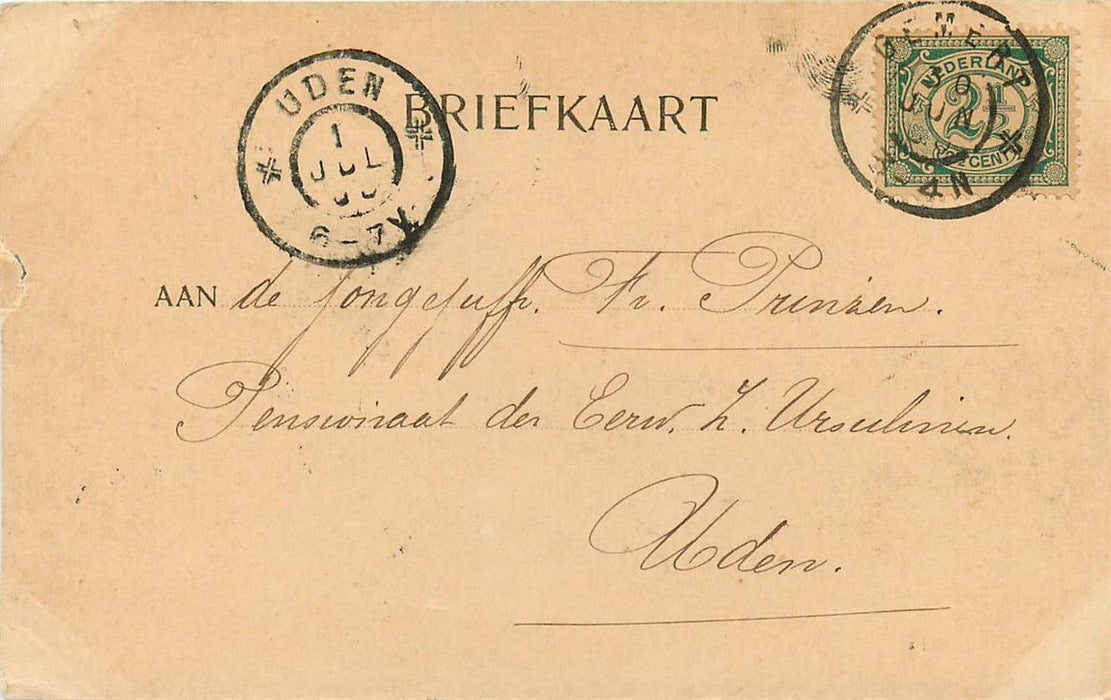 UDEN
1
JUL
6-7V
BRIEFKAART
GEMERT
JUN
4N
NEDERLAND
2½
CENT
AAN de Jongejuffr. Fr. Prinzen.
Pensionaat der Eerw. Z. Ursulinen.
Uden.